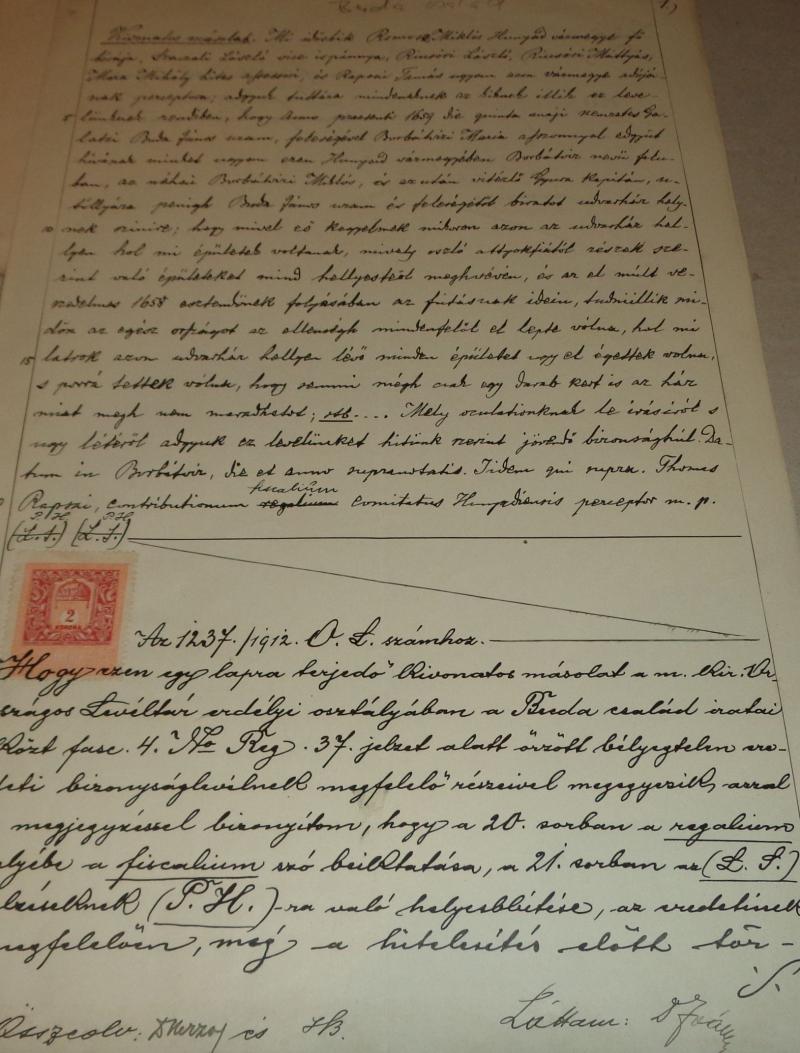 Buda család
1)
Kivonatos másolat. Mi
Miklós Hunyad vármegye fő
bírája, László vice ispánnya, László, Mattyás,
Mara Mihály hites assessori, és Rapsai Tamás ugyan azon vármegye adójá-
nak perceptora; adgyuk tuttára mindeneknek az kiknek illik ez leve-
5 lünknek rendiben, hogy Anno praesenti 1659 die quinta maji nemzetes Ga-
latzi Buda János uram, feleségével Borbátvizi Maria aszonnyal edgyüt
hivának minket ugyan ezen Hunyad vármegyében Borbátviz nevü falu-
ban, az néhai Borbátvizi Miklós, és azután vitézlő Gyura Kapitán, u-
tóllyára penigh Buda János uram és feleségétől biratot udvarház hely-
10 nek szinire; hogy mivel eő kegyelmek mikoron azon az udvarház hel-
lyen hol mi épületek voltanak, mively osztó attyokfiától, részek sze-
rint való épületeket mind hellyestől meghvévén, és az el múlt ve-
szedelmes 1658 esztendőnek folyásában az futásnak idein, tudniillik mi-
dőn az egész országot az ellenségh mindenfelől el lepte vólna, hol mi
15 latrok azon udvarház hellyen lévő minden épületet ugy el égettek volna,
s porrá tettek vólna, hogy semmi mégh csak egy darab kert is az ház
miat megh nem maradhatot; stb.... Mely oculationknak le irásáról s
ugy létéről adgyuk ez levelünket hitünk szerint jövendő bizonsághúl. Da-
tum in Borbátviz, die et anno supranotatis. Iidem qui supra. Thomas
fiscalium
Rapsai, contributionum regalium comitatus Hunyadiensis perceptor m. p.
P. H. P. H.
(L. S.) (L. S.)
2
KORONA
Az 1237./1912. O. L. számhoz.
Hogy ezen egy lapra terjedő kivonatos másolat a m. kir. Or-
szágos Levéltár erdélyi osztályában a Buda család iratai
közt fasc. 4. No Reg. 37. jelzet alatt őrzött bélyegtelen ere-
deti bizonyságlevélnek megfelelő részeivel megegyezik, azzal
megjegyzéssel bizonyítom, hogy a 20. sorban a regalium
elyébe a fiscalium szó beiktatása, a 21. sorban az (L. S.)
lzéseknek (P. H.)-ra való helyesbbítése, az eredetinek
egfelelően, még a hitelesítés előtt tör-
Összeolv: és HB.
Láttam: D